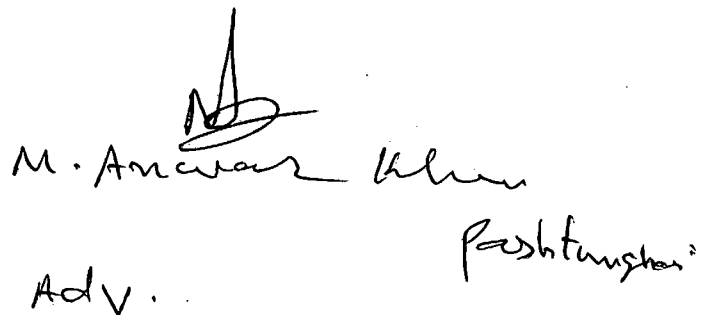 M. Anwar Khan
Pashtunghar
Adv.